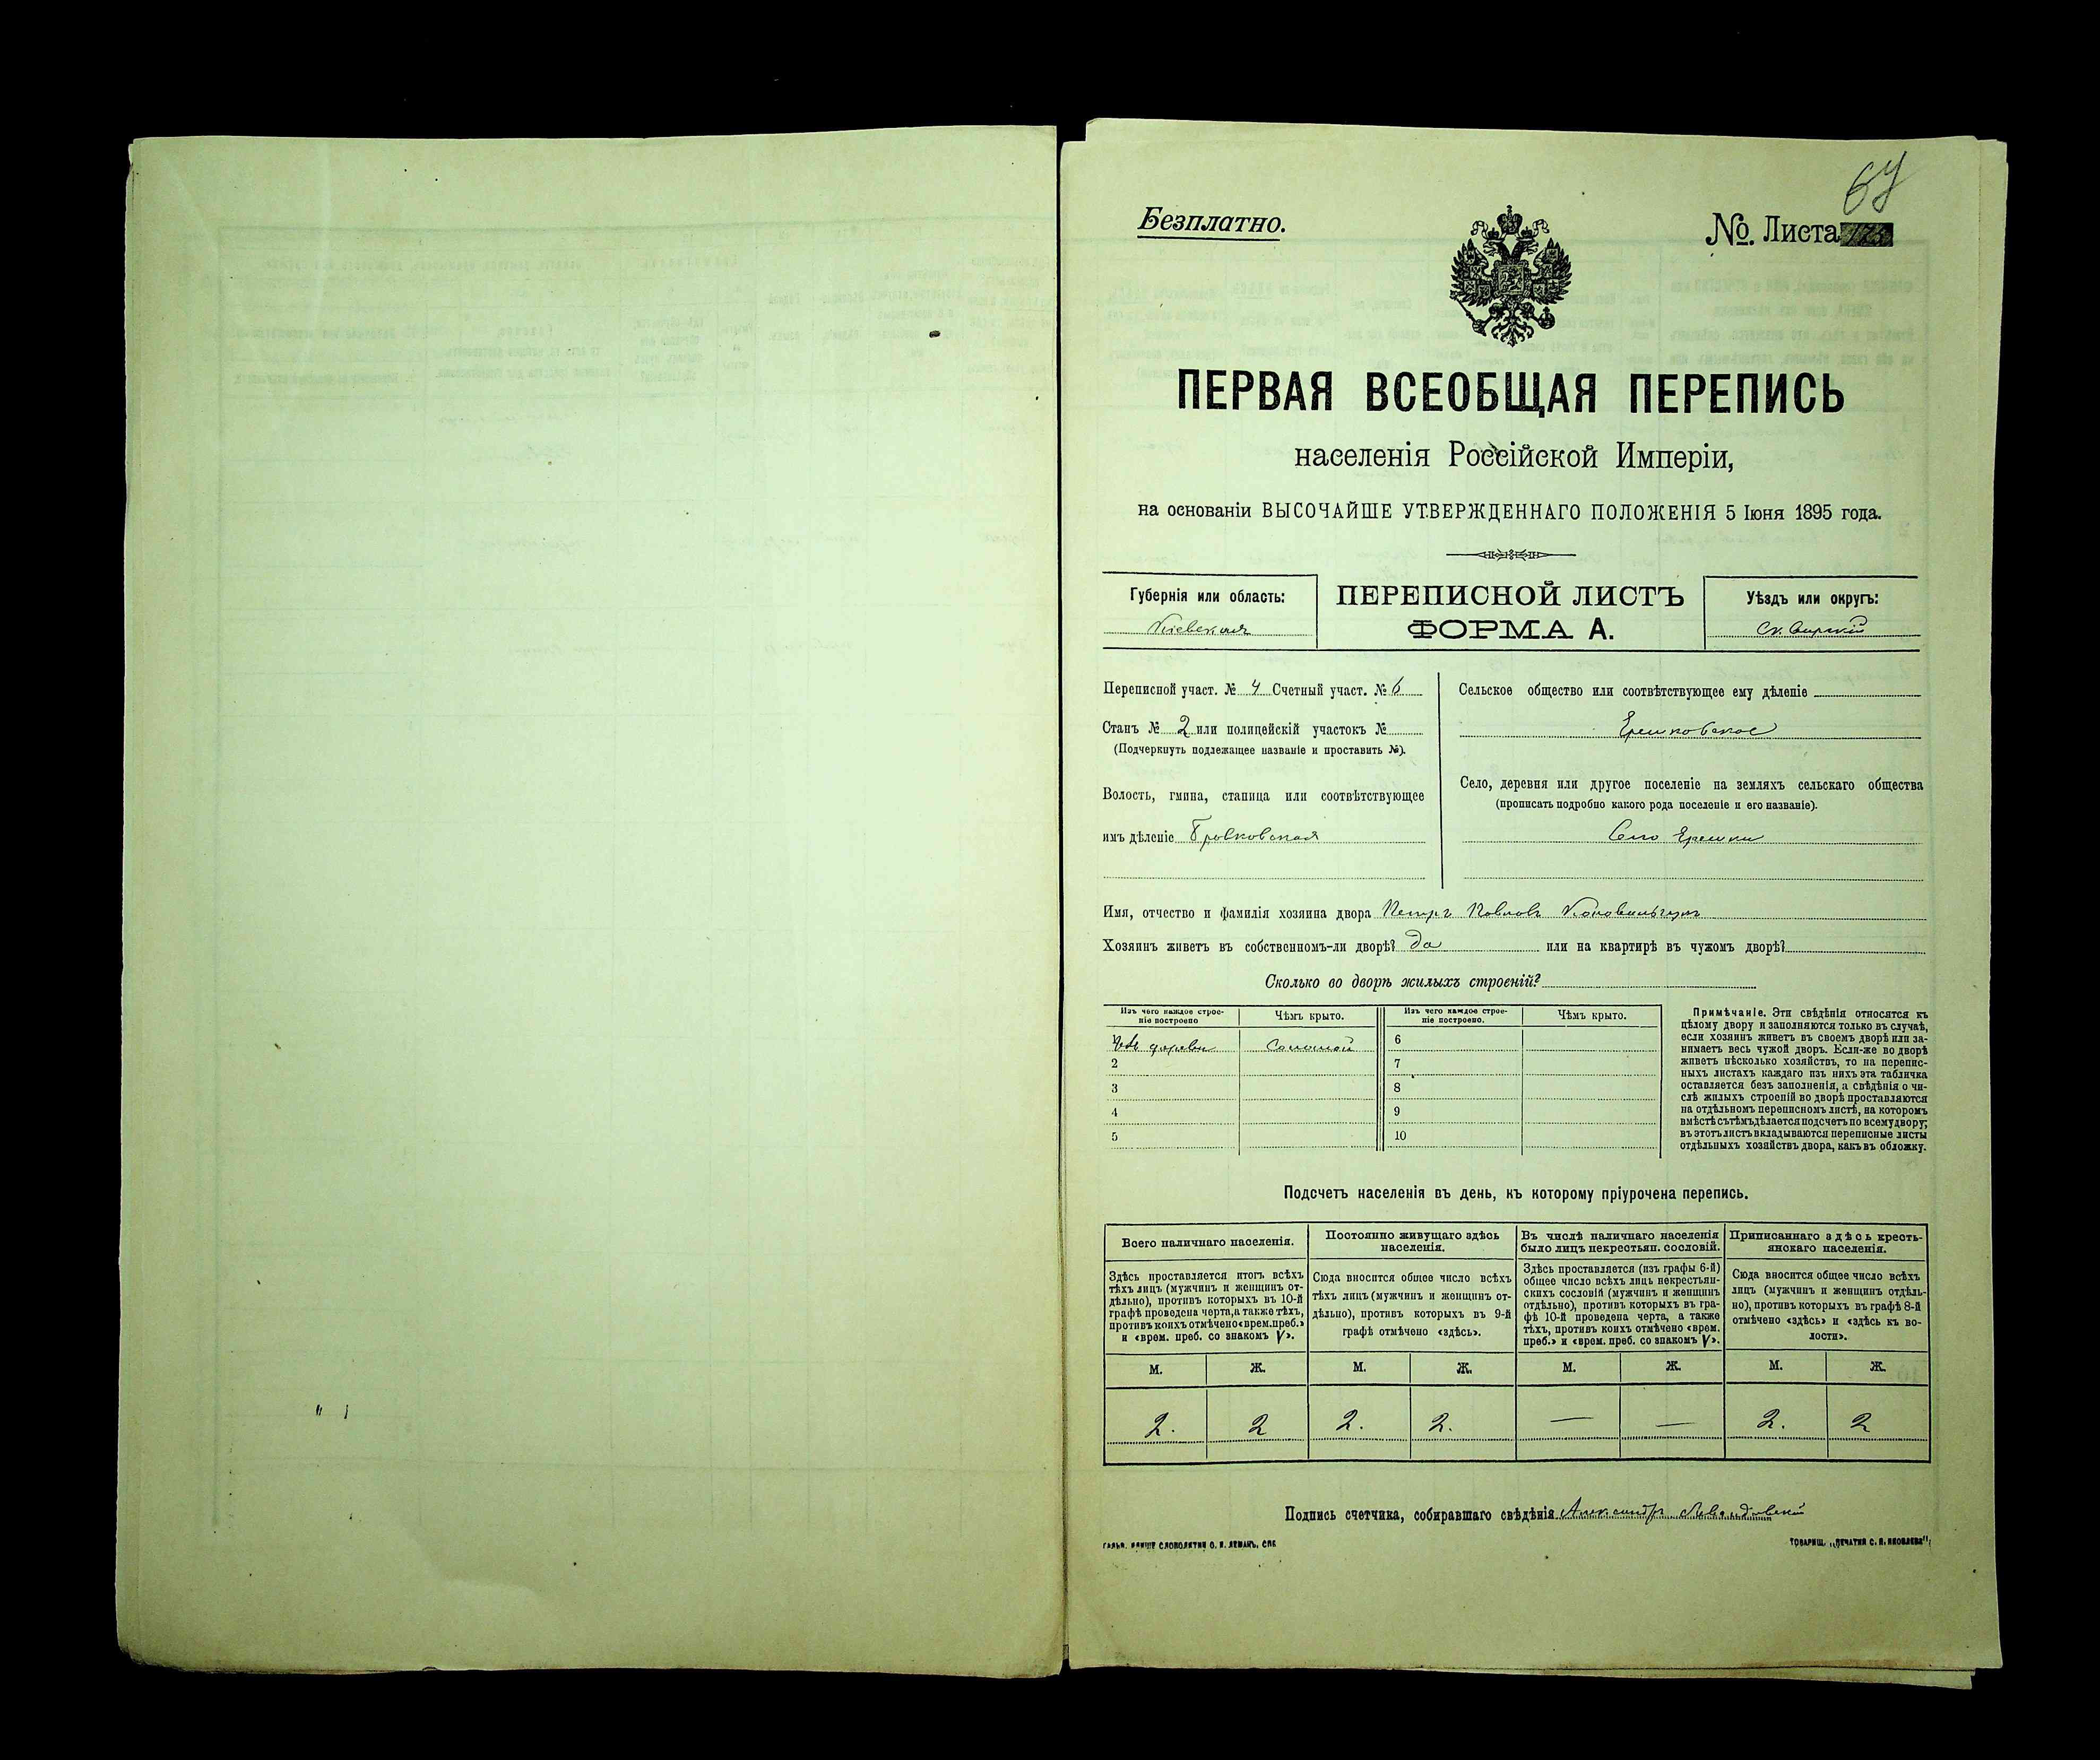 Безплатно.
№. Листа
ПЕРВАЯ ВСЕОБЩАЯ ПЕРЕПИСЬ
населенія Россійской Имперіи,
на основаніи ВЫСОЧАЙШЕ УТВЕРЖДЕННАГО ПОЛОЖЕНІЯ 5 Іюня 1895 года.
Губернія или область:
Кіевская
ПЕРЕПИСНОЙ ЛИСТЪ
ФОРМА А.
Уѣздъ или округъ:
Сквирскій
Переписной участ. № 4 Счетный участ. № 6
Станъ № 2 или полицейскій участокъ №
(Подчеркнуть подлежащее названіе и проставить №).
Волость, гмина, станица или соотвѣтствующее
имъ дѣленіе Бровковская
Сельское общество или соотвѣтствующее ему дѣленіе
Ерешковское
Село, деревня или другое поселеніе на земляхъ сельскаго общества
(прописать подробно какого рода поселеніе и его названіе).
Село Ерешки
Имя, отчество и фамилія хозяина двора Петръ Павловъ
Хозяинъ живетъ въ собственномъ-ли дворѣ? да или на квартирѣ въ чужомъ дворѣ?
Сколько во дворѣ жилыхъ строеній?
Изъ чего каждое строе-
ніе построено
Чѣмъ крыто.
Изъ чего каждое строе-
ніе построено.
Чѣмъ крыто.
дерева Соломой 6
2 7
3 8
4 9
5 10
Примѣчаніе. Эти свѣдѣнія относятся къ
цѣлому двору и заполняются только въ случаѣ,
если хозяинъ живетъ въ своемъ дворѣ или за-
нимаетъ весь чужой дворъ. Если-же во дворѣ
живетъ нѣсколько хозяйствъ, то на перепис-
ныхъ листахъ каждаго изъ нихъ эта табличка
оставляется безъ заполненія, а свѣдѣнія о чи-
слѣ жилыхъ строеній во дворѣ проставляются
на отдѣльномъ переписномъ листѣ, на которомъ
вмѣстѣ съ тѣмъ дѣлается подсчетъ по всему двору;
въ этотъ листъ вкладываются переписные листы
отдѣльныхъ хозяйствъ двора, какъ въ обложку.
Подсчетъ населенія въ день, къ которому пріурочена перепись.
Всего наличнаго населенія.
Здѣсь проставляется итогъ всѣхъ
тѣхъ лицъ (мужчинъ и женщинъ от-
дѣльно), противъ которыхъ въ 10-й
графѣ проведена черта, а также тѣхъ,
противъ коихъ отмѣчено «врем. преб.»
и «врем. преб. со знакомъ V».
Постоянно живущаго здѣсь
населенія.
Сюда вносится общее число всѣхъ
тѣхъ лицъ (мужчинъ и женщинъ от-
дѣльно), противъ которыхъ въ 9-й
графѣ отмѣчено «здѣсь».
Въ числѣ наличнаго населенія
было лицъ некрестьян. сословій.
Здѣсь проставляется (изъ графы 6-й)
общее число всѣхъ лицъ некрестьян-
скихъ сословій (мужчинъ и женщинъ
отдѣльно), противъ которыхъ въ гра-
фѣ 10-й проведена черта, а также
тѣхъ, противъ коихъ отмѣчено «врем.
преб.» и «врем. преб. со знакомъ V».
Приписаннаго здѣсь кресть-
янскаго населенія.
Сюда вносится общее число всѣхъ
лицъ (мужчинъ и женщинъ отдѣль-
но), противъ которыхъ въ графѣ 8-й
отмѣчено «здѣсь» и «здѣсь къ во-
лости».
М. Ж. М. Ж. М. Ж. М. Ж.
2. 2 2. 2. — — 2. 2
Подпись счетчика, собиравшаго свѣдѣнія Александръ Левандовскій
ГАЛЬВ. КЛИШЕ СЛОВОЛИТНИ О. И. ЛЕМАНЪ, СПБ
ТОВАРИЩ. „ПЕЧАТНЯ С. П. ЯКОВЛЕВА"